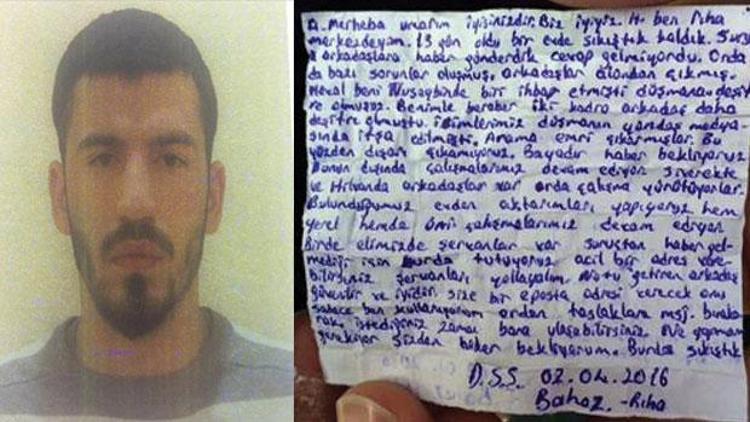 Merheba umarım iyisinizdir. Biz iyiyiz. H. ben Riha
merkezdeyım. 13 gün oldu bir evde sıkıştık kaldık. Suruç
arkadaşlara haber gönderdik cevap gelmiyordu. Orda
da bazı sorunlar oluşmuş, arkadaşlar alandan çıkmış.
Heval beni Nusaybinde bir ihbap etmişti düşmana deşif
re olmuşuz. Benimle beraber iki kadro arkadaş daha
deşifre olmuştu. isimlerimiz düşmanın yandaş medya
sında ifşa edilmişti. Arama emri çıkarmışlar. Bu
yüzden dışarı çıkamıyoruz. Bayadır haber bekliyoruz
Bunun dışında çalışmalarımız devam ediyor siverekte
ve Hilvanda arkadaşlar var orda çalışma yürütüyorlar.
Bulunduğumuz evden aktarımları yapıyoruz hem
yerel hemde çalışmalarımız devam ediyor
Birde elimizde şervanlar var suruçtan haber gel
mediği için burda tutuyoruz acil bir adres vere
bilirseniz şervanları yollayalım. Notu getiren arkadaş
güvenilir ve iyidir. size bir eposta adresi verecek onu
sadece ben kullanıyorum ordan taslaklara msj. bıraka
rak, istediğiniz zaman bana ulaşabilirsiniz. Ne yapmam
gerekiyor sizden haber bekliyorum. Burda sıkıştık
D.S.S. 02.04.2016
Bahoz -Riha